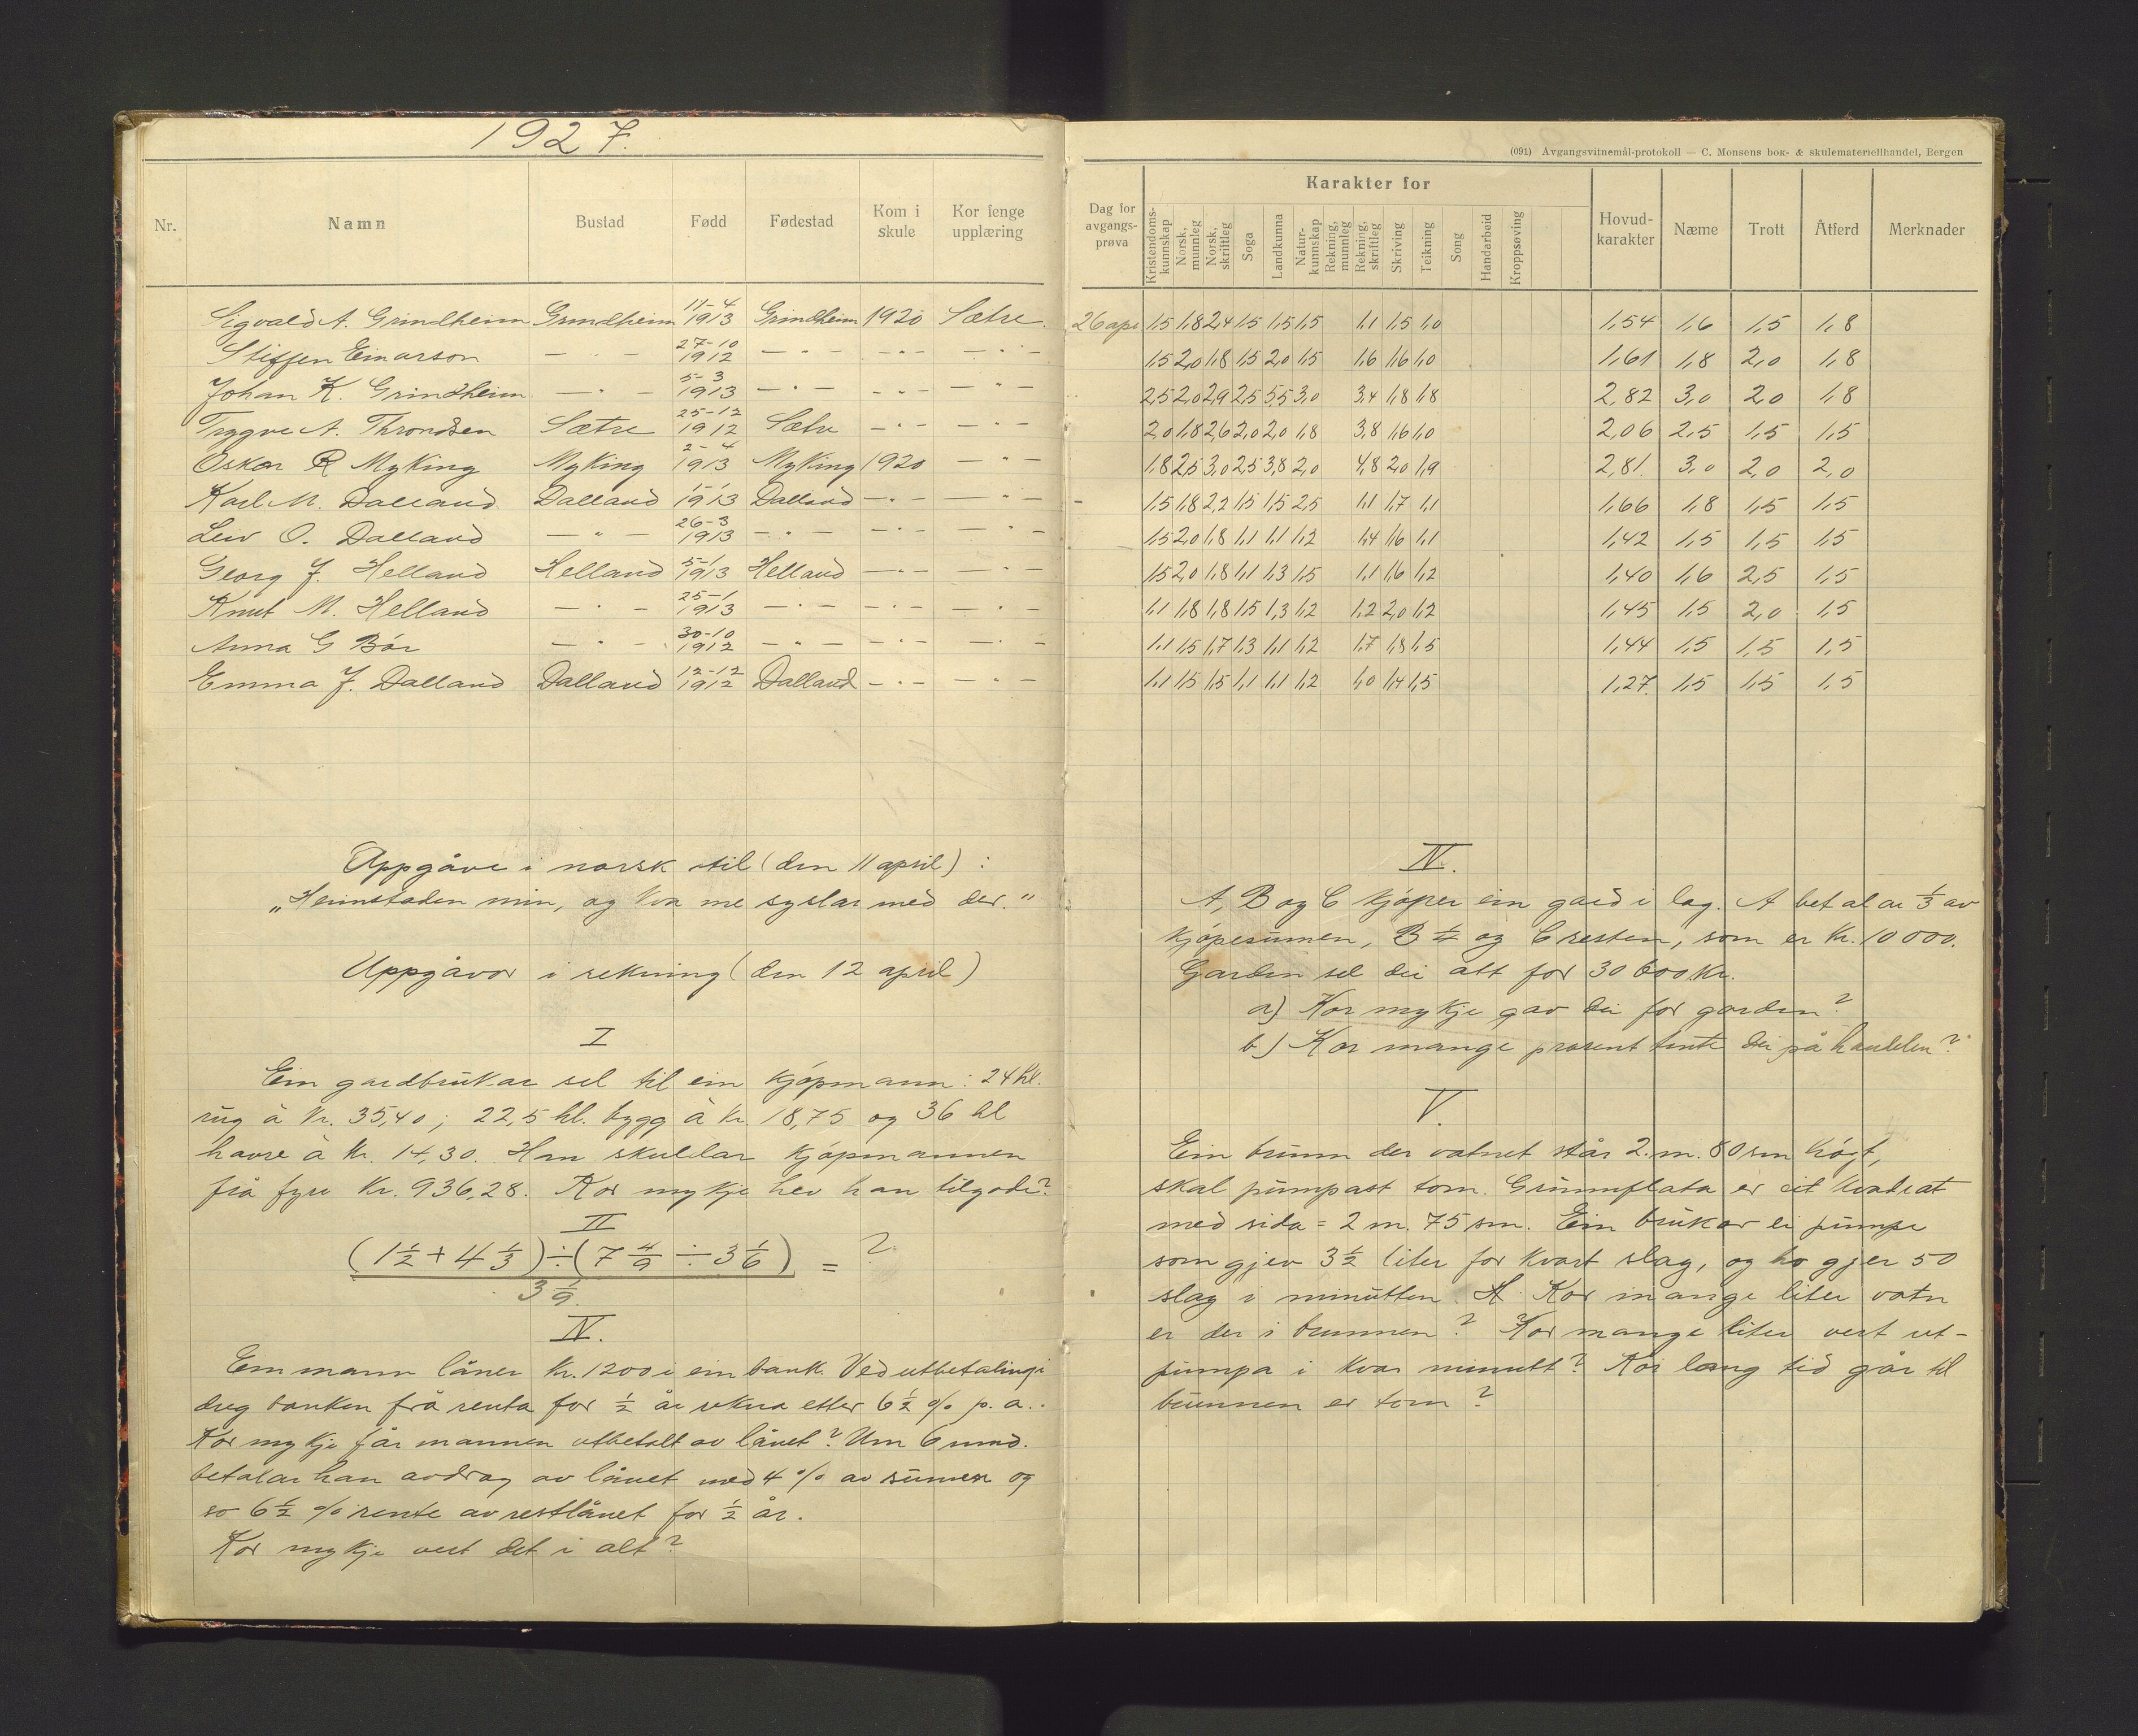 1927.
(091) Avgangsvitnemål-protokoll — C. Monsens bok- & skulemateriellhandel, Bergen
Nr. Namn Bustad Fødd Fødestad Kom i skule Kor fenge upplæring
Sigvald A. Grindheim Grindheim 11-4 1913 Grindheim 1920 Sætre.
Steffen Einarson — " — 27-10 1912 — " — — " — — " —
Johan K. Grindheim — " — 5-3 1913 — " — - " - — " —
Trygve A. Throndsen Sætre 25-12 1912 Sætre — " — — " —
Oskar R Myking Myking 2-4 1913 Myking 1920 — " —
Karl M. Dalland Dalland 1913 Dalland — " — — " —
Leiv O. Dalland — " — 26-3 1913 — " — — " — — " —
Georg J. Helland Helland 5-1 1913 Helland — " — — " —
Knut M. Helland — " — 25-1 1913 — " — — " — — " —
Anna G Bør — " — 30-10 1912 — " — — " — — " —
Emma J. Dalland Dalland 12-12 1912 Dalland — " — — " —
Uppgåve i norsk stil (den 11 april) :
„Heimstaden min, og kva me syslar med der."
Uppgåvor i rekning (den 12 april)
I
Ein gardbrukar sel til ein kjøpmann: 24 hl.
rug à kr. 35,40; 22,5 hl. bygg à kr. 18,75 og 36 hl
havre à kr. 14,30. Han skuldar kjøpmannen
frå fyrr kr. 936,28. Kor mykje hev han tilgode?
II
(1 1/2 + 4 1/3) ÷ (7 4/9 ÷ 3 1/6) = ?
3 1/9.
IV.
Ein mann låner kr. 1200 i ein bank. Ved utbetalingi
dreg banken frå renta for 1/2 år rekna etter 6 1/2 % p.a..
Kor mykje får mannen utbetalt av lånet? Um 6 mnd.
betalar han avdrag av lånet med 4 % av sumen og
so 6 1/2 % rente av restlånet for 1/2 år.
Kor mykje vert det i alt?
Dag for avgangsprøva Karakter for Hovudkarakter Næme Trott Åtferd Merknader
Kristendomskunnskap Norsk, munnleg Norsk, skriftleg Soga Landkunna Naturkunnskap Rekning, munnleg Rekning, skriftleg Skriving Teikning Song Handarbeid Kroppsøving
26 apr 1,5 1,8 2,4 1,5 1,5 1,5 1,1 1,5 1,0 1,54 1,6 1,5 1,8
1,5 2,0 1,8 1,5 2,0 1,5 1,6 1,6 1,0 1,61 1,8 2,0 1,8
2,5 2,0 2,9 2,5 5,5 3,0 3,4 1,8 1,8 2,82 3,0 2,0 1,8
2,0 1,8 2,6 2,0 2,0 1,8 3,8 1,6 1,0 2,06 2,5 1,5 1,5
1,8 2,5 3,0 2,5 3,8 2,0 4,8 2,0 1,9 2,81. 3,0 2,0 2,0
1,5 1,8 2,2 1,5 1,5 2,5 1,1 1,7 1,1 1,66 1,8 1,5 1,5
1,5 2,0 1,8 1,1 1,1 1,2 1,4 1,6 1,1 1,42 1,5 1,5 1,5
1,5 2,0 1,8 1,1 1,3 1,5 1,1 1,6 1,2 1,40 1,6 2,5 1,5
1,1 1,8 1,8 1,5 1,3 1,2 1,2 2,0 1,2 1,45 1,5 2,0 1,5
1,1 1,5 1,7 1,3 1,1 1,2 1,7 1,8 1,5 1,44 1,5 1,5 1,5
1,1 1,5 1,5 1,1 1,1 1,2 1,0 1,4 1,5 1,27. 1,5 1,5 1,5
IV.
A, B og C kjøper ein gard i lag. A betalar 1/3 av
kjøpesumen, B 1/4 og C resten, som er kr. 10 000.
Garden sel dei att for 30 600 kr.
a) Kor mykje gav dei for garden?
b) Kor mange prosent tente dei på handelen?
V.
Ein brunn der vatnet står 2. m. 80 sm høgt,
skal pumpast tom. Grunnflata er eit kvadrat
med sida = 2 m. 75 sm. Ein brukar ei pumpe
som gjev 3 1/2 liter for kvart slag, og ho gjer 50
slag i minutten. Kor mange liter vatn
er der i brunnen? Kor mange liter vert ut-
pumpa i kvar minutt? Kor lang tid går til
brunnen er tom?